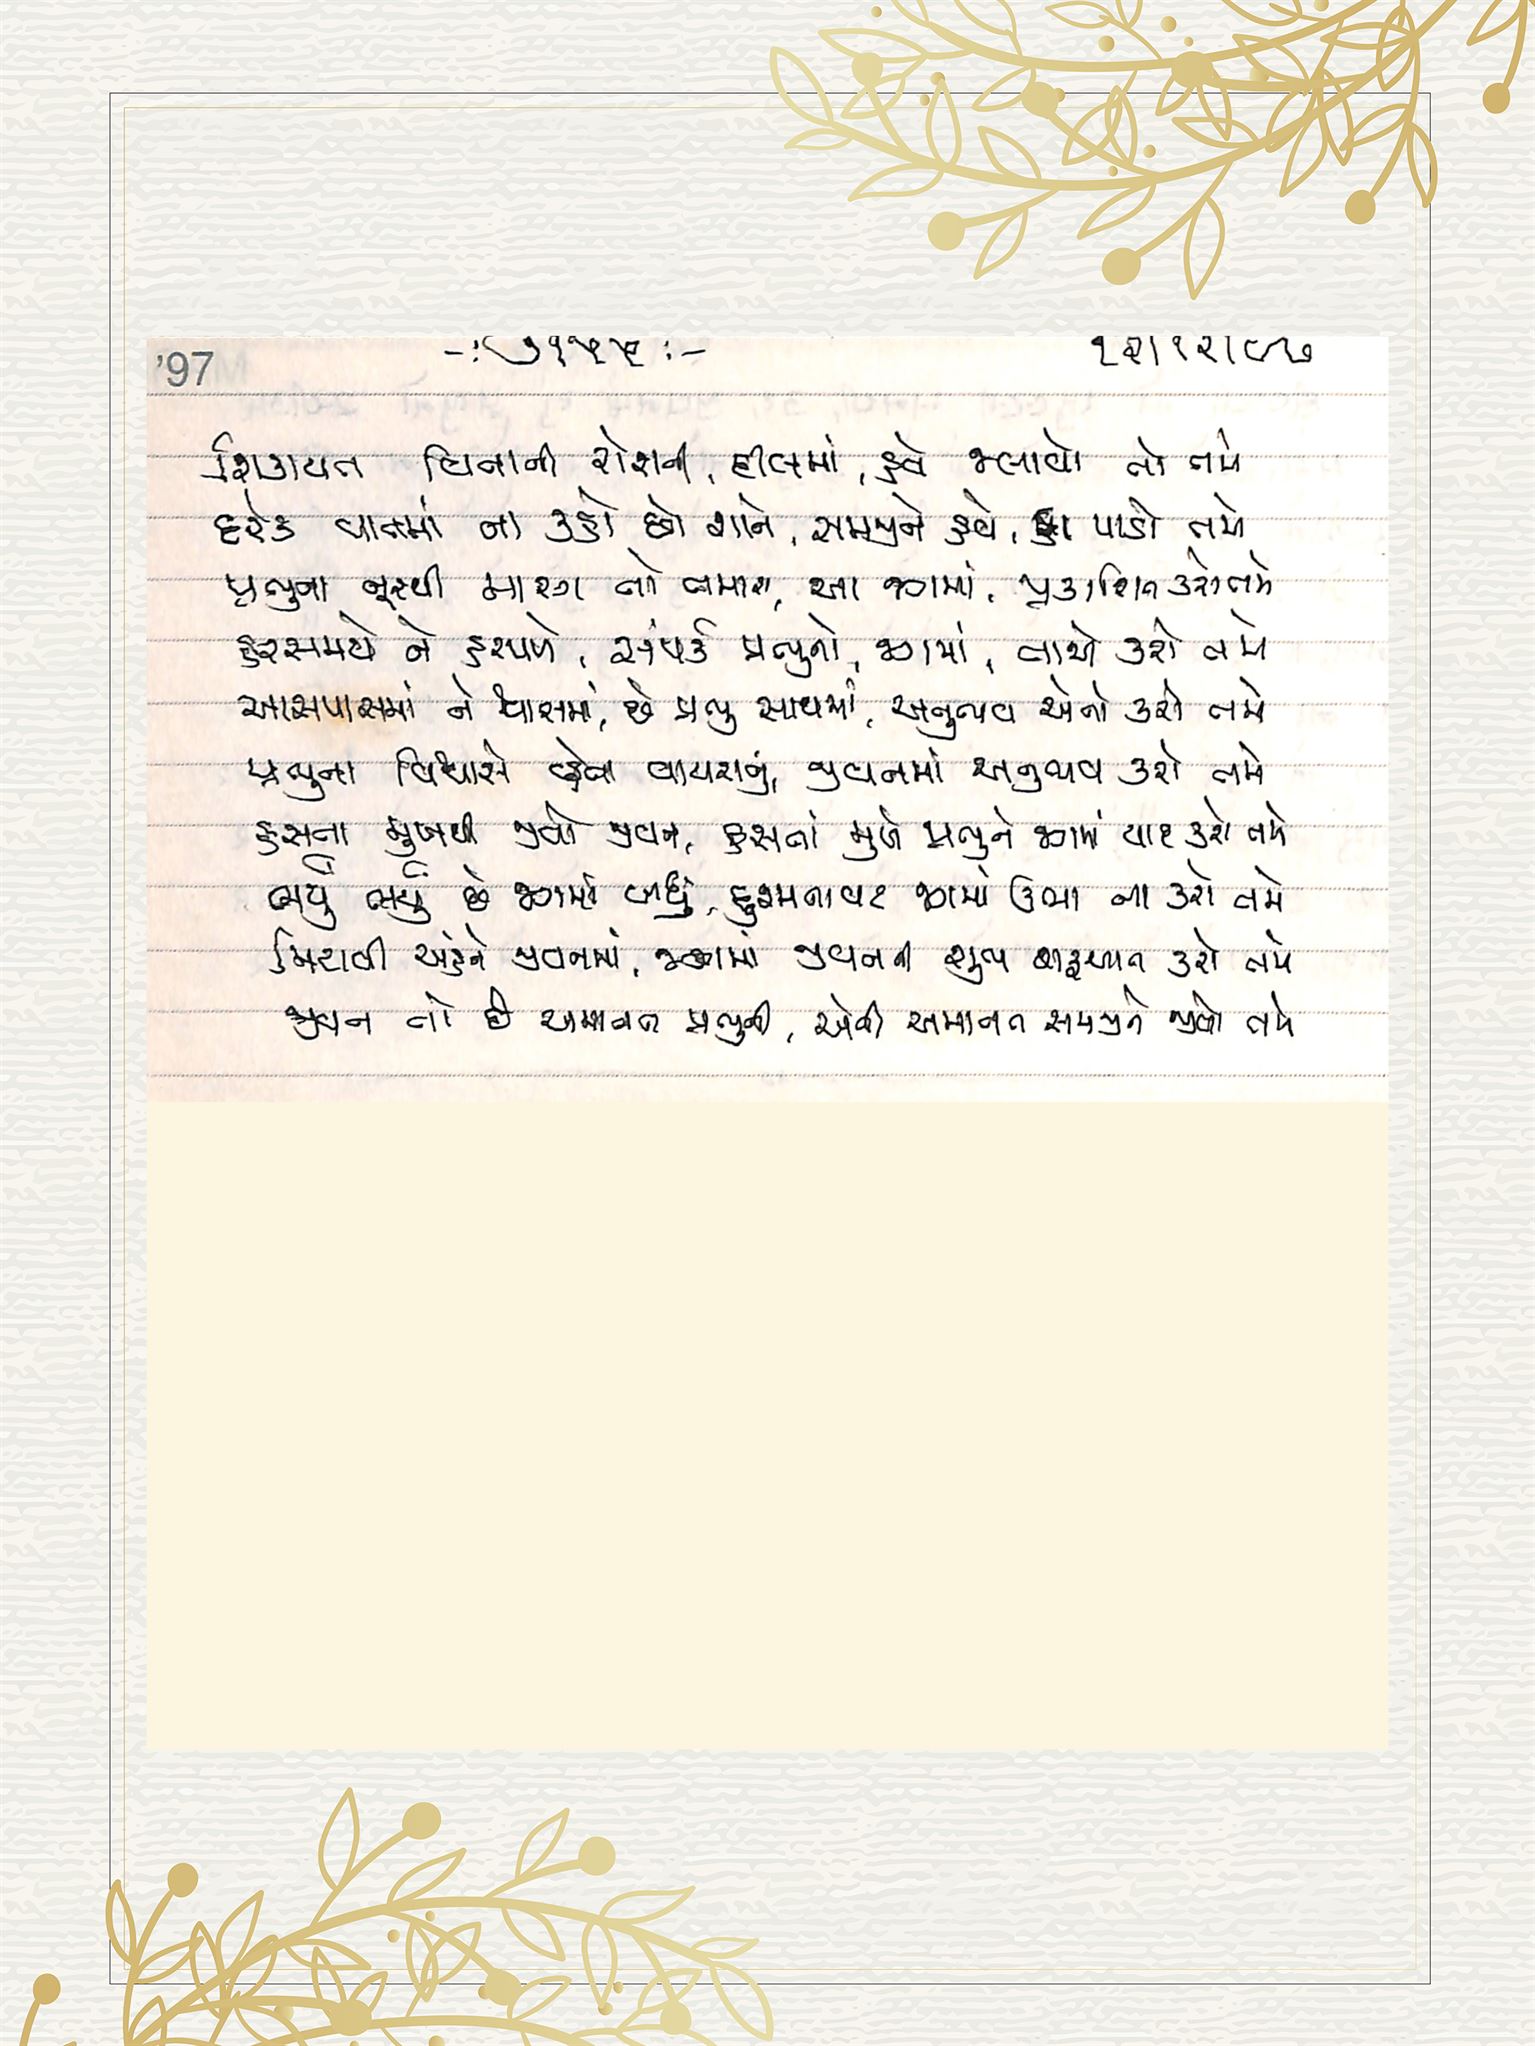 '97
-: ૭૧૫૫ :-
૧૨/૧૨/૯૭
શિકાયત વિનાની રોશની, દીલમાં, હવે જલાવો તો તમે
દરેક વાતમાં ના કહો છો શાને, સમજીને હવે, હા પાડો તમે
પ્રભુના નૂરથી મારગ તો તમારા, આ જગમાં, પ્રકાશિત કરો તમે
હરસમયે ને હરપળે, સંપર્ક પ્રભુનો, જગમાં, સાધો કરો તમે
આસપાસમાં ને શ્વાસમાં, છે પ્રભુ સાથમાં, અનુભવ એનો કરો તમે
પ્રભુના વિશ્વાસે વ્હેતા વાયરાનું, જીવનમાં અનુભવ કરો તમે
હસતા મુખથી જીવો જીવન, હસતાં મુખે પ્રભુને જગમાં યાદ કરો તમે
ભર્યું ભર્યું છે જગમાં બધું, દુશ્મનાવટ જગમાં ઉભી ના કરો તમે
મિટાવી અહંને જીવનમાં, જગમાં જીવનની શુભ શરૂઆત કરો તમે
જીવન તો છે અમાનત પ્રભુની, એવી અમાનત સમજીને જીવો તમે